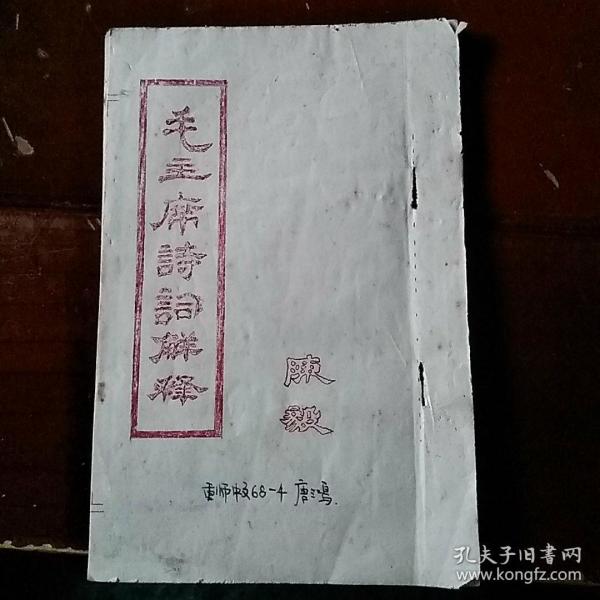 毛主席詩詞解释
陳毅
重师中文68-4 唐三鸣
孔夫子旧书网
www.kongfz.com